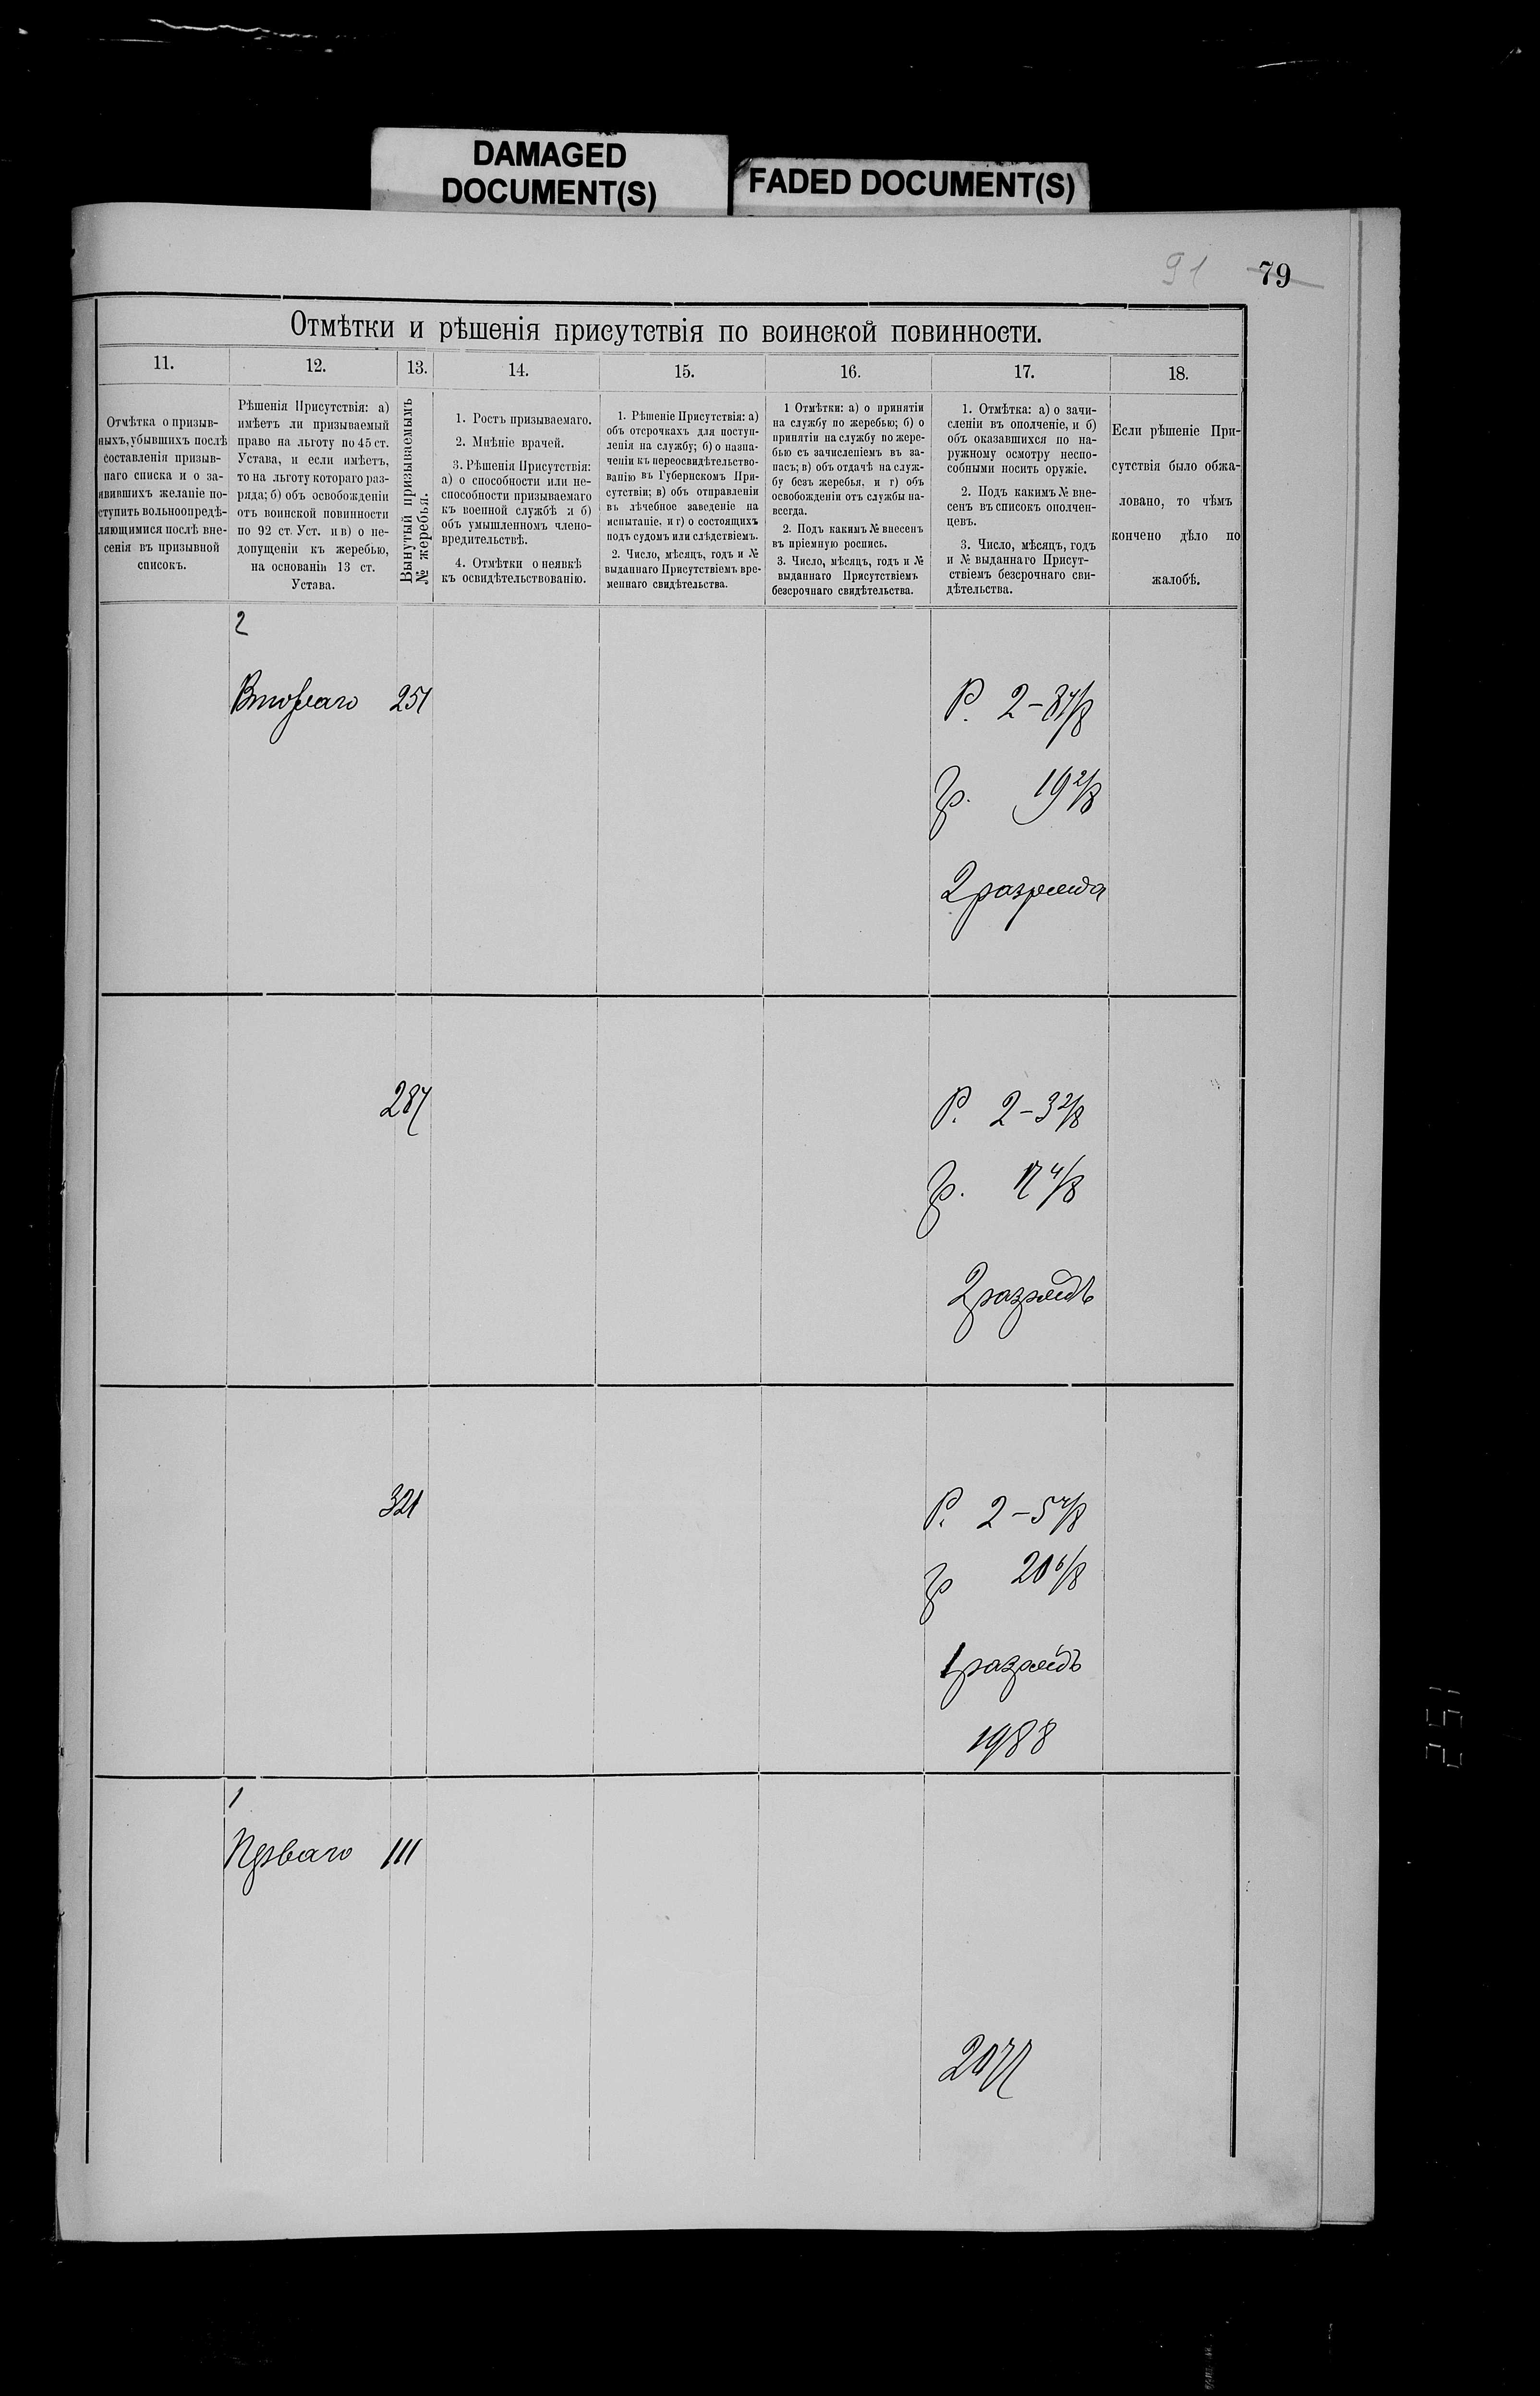 DAMAGED
DOCUMENT(S)
FADED DOCUMENT(S)
91
79
Отмѣтки и рѣшенія присутствія по воинской повинности.
11.
12.
13.
14.
15.
16.
17.
18.
Отмѣтка о призыв-
ныхъ, убывшихъ послѣ
составленія призыв-
наго списка и о за-
явившихъ желаніе по-
ступить вольноопредѣ-
ляющимися послѣ вне-
сенія въ призывной
списокъ.
Рѣшенія Присутствія: а)
имѣетъ ли призываемый
право на льготу по 45 ст.
Устава, и если имѣетъ,
то на льготу котораго раз-
ряда; б) объ освобожденіи
отъ воинской повинности
по 92 ст. Уст. и в) о не-
допущеніи къ жеребью,
на основаніи 13 ст.
Устава.
Вынутый призываемымъ
№ жеребья.
1. Ростъ призываемаго.
2. Мнѣніе врачей.
3. Рѣшенія Присутствія:
а) о способности или не-
способности призываемаго
къ военной службѣ и б)
объ умышленномъ члено-
вредительствѣ.
4. Отмѣтки о неявкѣ
къ освидѣтельствованію.
1. Рѣшеніе Присутствія: а)
объ отсрочкахъ для поступ-
ленія на службу; б) о назна-
ченіи къ переосвидѣтельство-
ванію въ Губернскомъ При-
сутствіи; в) объ отправленіи
въ лѣчебное заведеніе на
испытаніе, и г) о состоящихъ
подъ судомъ или слѣдствіемъ.
2. Число, мѣсяцъ, годъ и №
выданнаго Присутствіемъ вре-
меннаго свидѣтельства.
1 Отмѣтки: а) о принятіи
на службу по жеребью; б) о
принятіи на службу по жере-
бью съ зачисленіемъ въ за-
пасъ; в) объ отдачѣ на служ-
бу безъ жеребья, и г) объ
освобожденіи отъ службы на-
всегда.
2. Подъ какимъ № внесенъ
въ пріемную роспись.
3. Число, мѣсяцъ, годъ и №
выданнаго Присутствіемъ
безсрочнаго свидѣтельства.
1. Отмѣтка: а) о зачи-
сленіи въ ополченіе, и б)
объ оказавшихся по на-
ружному осмотру неспо-
собными носить оружіе.
2. Подъ какимъ № вне-
сенъ въ списокъ ополчен-
цевъ.
3. Число, мѣсяцъ, годъ
и № выданнаго Присут-
ствіемъ безсрочнаго сви-
дѣтельства.
Если рѣшеніе При-
сутствія было обжа-
ловано, то чѣмъ
кончено дѣло по
жалобѣ.
2
Втораго 251
Р. 2-8 4/8
гр. 19 2/8
2 разряда
287
Р. 2-3 2/8
гр. 17 4/8
2 разрядъ
321
Р. 2-5 4/8
гр 20 6/8
1 разрядъ
1988
1
Перваго 111
2077
251